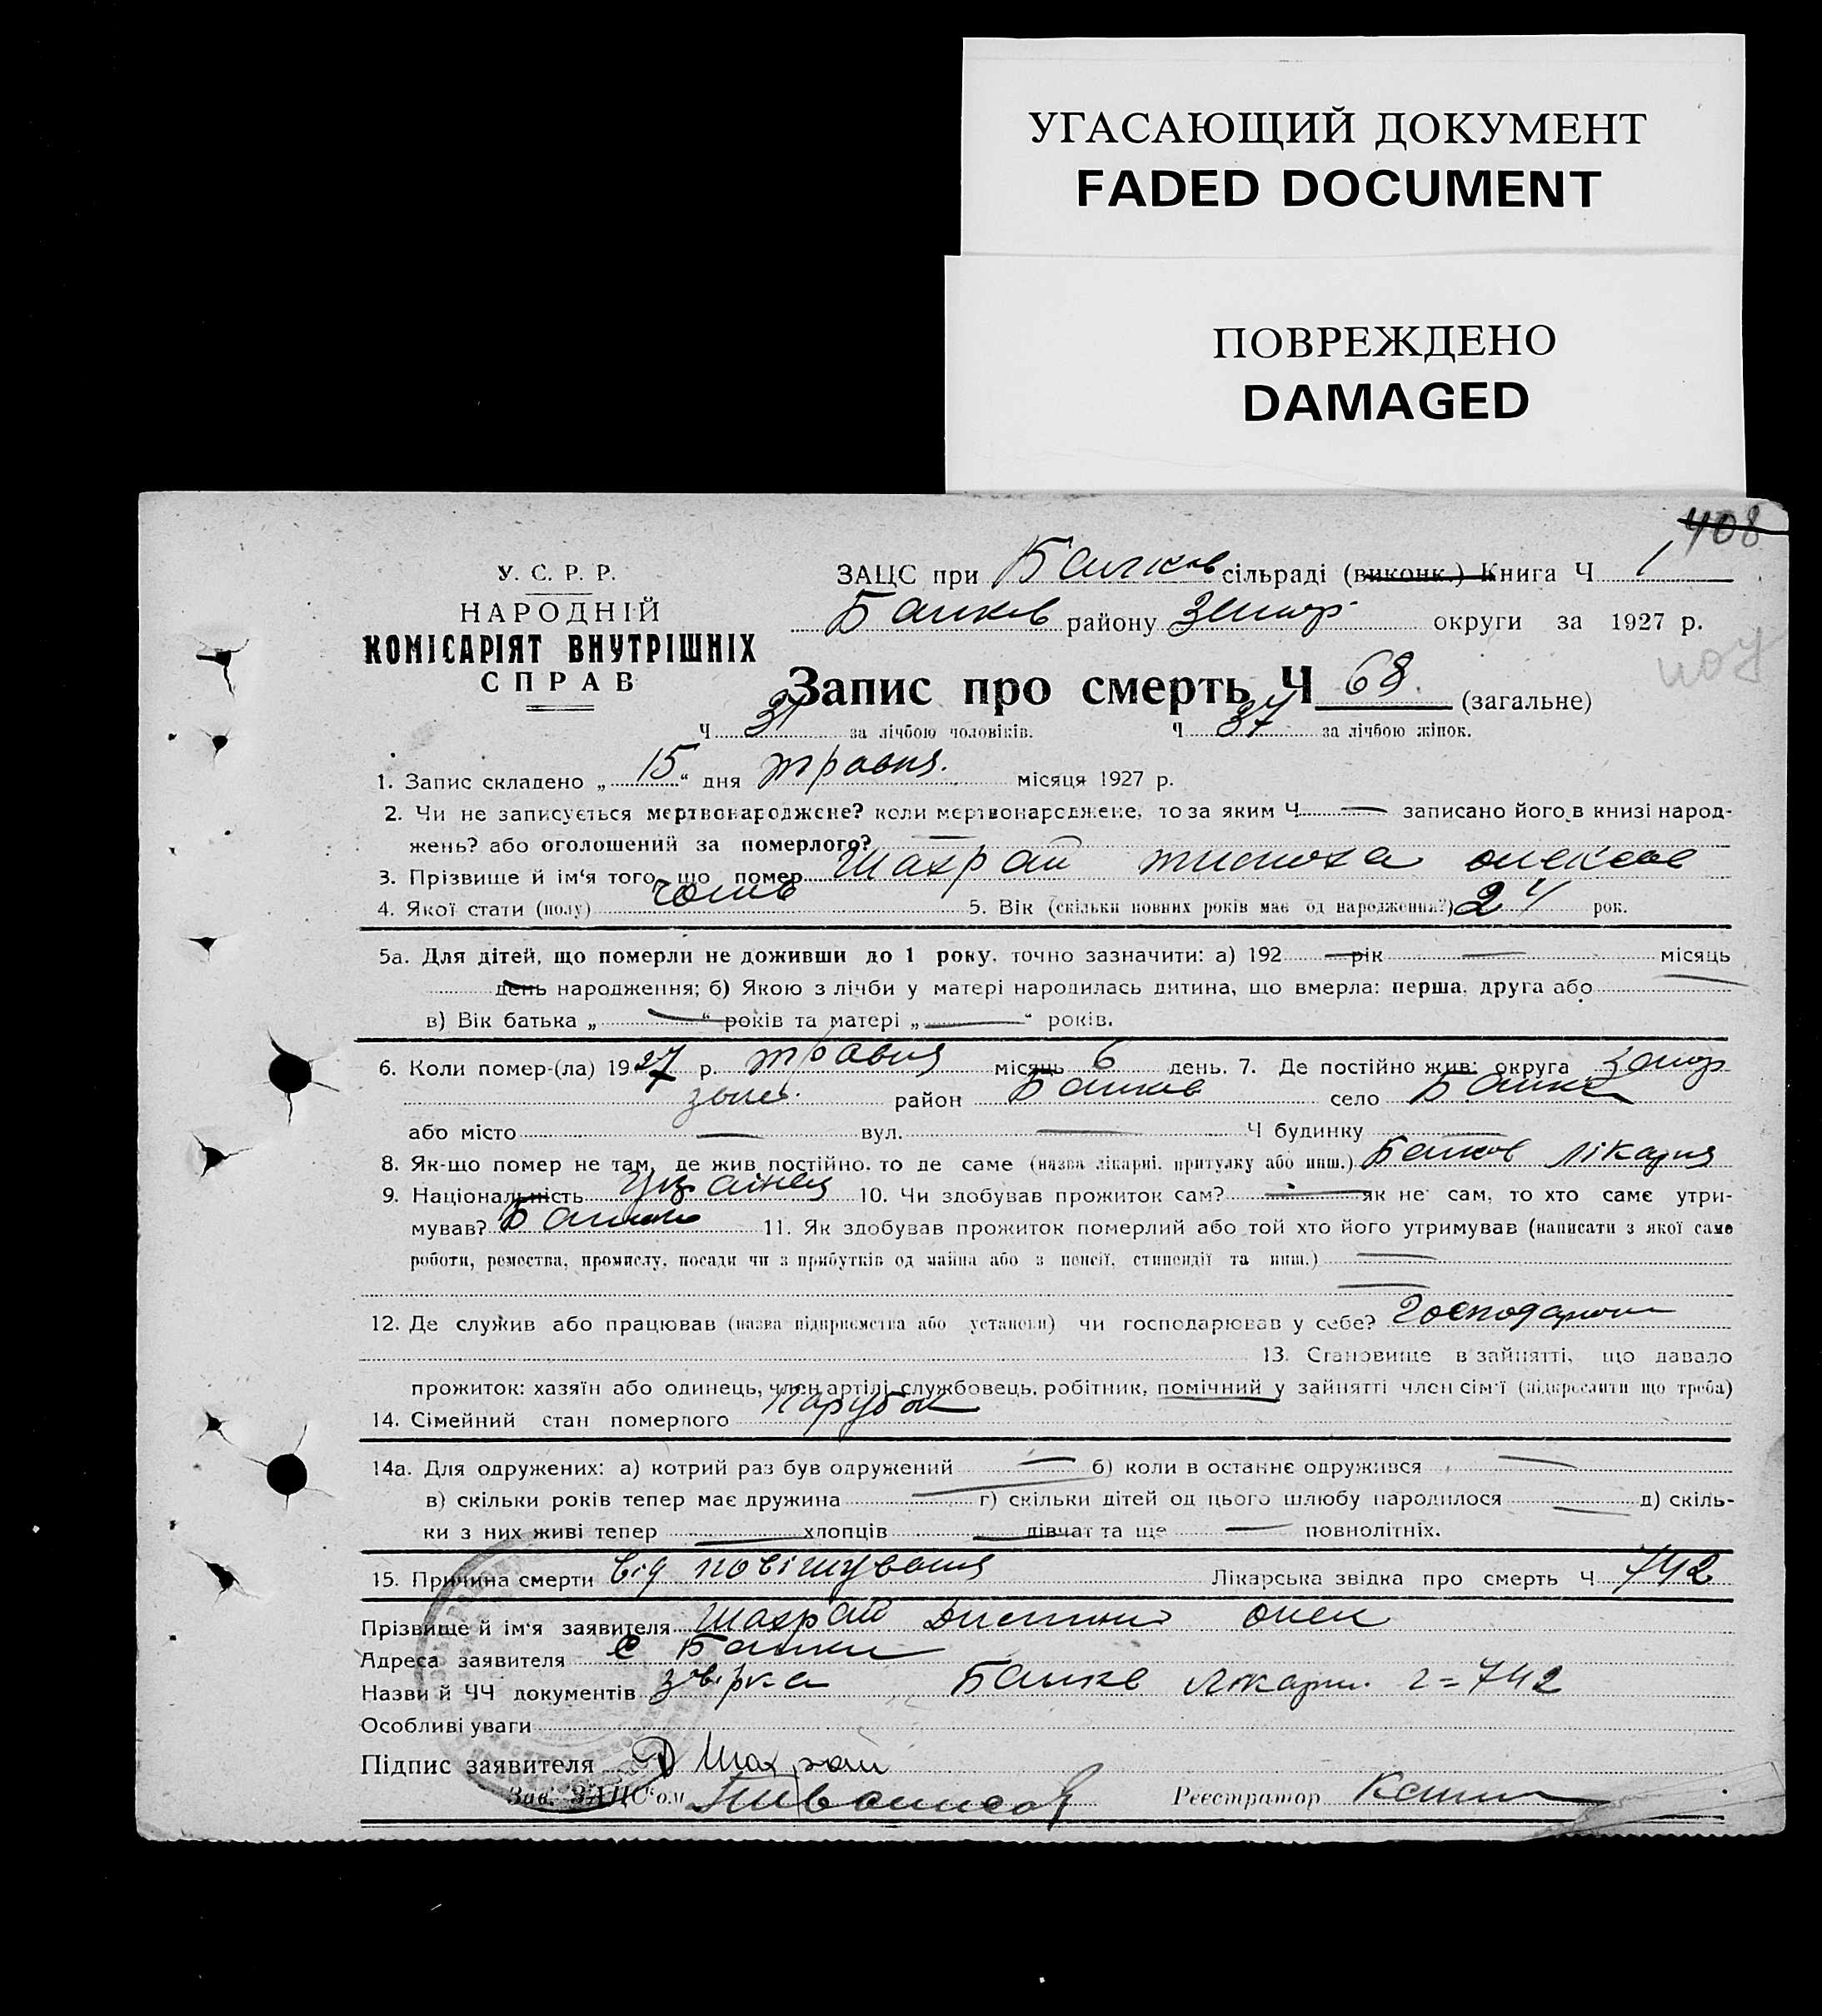 УГАСАЮЩИЙ ДОКУМЕНТ
FADED DOCUMENT
ПОВРЕЖДЕНО
DAMAGED
408
У. С. Р. Р.
НАРОДНІЙ
КОМІСАРІЯТ ВНУТРІШНІХ
СПРАВ
ЗАЦС при Балков сільраді (виконк.) Книга Ч 1
Балков району Запор округи за 1927 р.
Запис про смерть Ч 68 (загальне)
Ч 31 за лічбою чоловіків. Ч 37 за лічбою жінок.
1. Запис складено „ 15 “ дня травня. місяця 1927 р.
2. Чи не записується мертвонароджене? коли мертвонароджене, то за яким Ч — записано його в книзі народ-
жень? або оголошений за померлого? —
3. Прізвище й ім‘я того, що помер Шахрай тимоха олексев
4. Якої стати (полу) чолов 5. Вік (скільки повних років має од народження?) 21 рок.
5а. Для дітей, що померли не доживши до 1 року, точно зазначити: а) 192 — рік — місяць
— день народження; б) Якою з лічби у матері народилась дитина, що вмерла: перша, друга або —
в) Вік батька „ — “ років та матері „ — “ років.
6. Коли помер-(ла) 1927 р. травня місяць 6 день. 7. Де постійно жив: округа Запор
район Балков село Балки
або місто — вул. — Ч будинку —
8. Як-що помер не там, де жив постійно, то де саме (назва лікарні, притулку або инш.) Балков лікарня
9. Національність Українец 10. Чи здобував прожиток сам? — як не сам, то хто саме утри-
мував? Батько 11. Як здобував прожиток померлий або той хто його утримував (написати з якої саме
роботи, ремества, промислу, посади чи з прибутків од майна або з пенсії, стипендії та инш.) —
—
12. Де служив або працював (назва підприємства або установи) чи господарював у себе? Господарюв
13. Становище в зайнятті, що давало
прожиток: хазяїн або одинець, член артілі, службовець, робітник, помічний у зайнятті член сім‘ї (підкреслити що треба)
14. Сімейний стан померлого Парубок
14а. Для одружених: а) котрий раз був одружений — б) коли в останнє одружився —
в) скільки років тепер має дружина — г) скільки дітей од цього шлюбу народилося — д) скіль-
ки з них живі тепер — хлопців — дівчат та ще — повнолітніх.
15. Причина смерти від повішування Лікарська звідка про смерть Ч 742
Прізвище й ім‘я заявителя Шахрай Олек
Адреса заявителя с Балки
Назви й ЧЧ документів Балков лікарн. 742
Особливі уваги
Підпис заявителя Д Шахрай
Зав. ЗАЦС‘ом Реєстратор